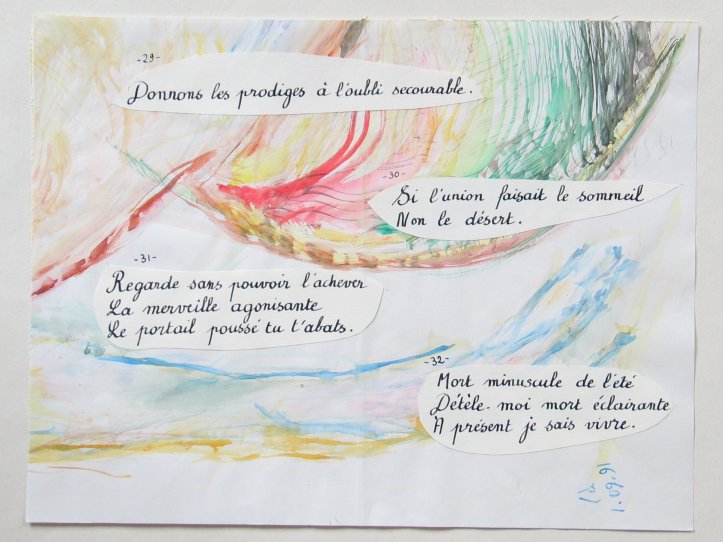 -29-
Donnons les prodiges à l'oubli secourable.
-30-
Si l'union faisait le sommeil
Non le désert.
-31-
Regarde sans pouvoir l'achever
La merveille agonisante
Le portail poussé tu t'abats.
-32-
Mort minuscule de l'été
Détèle-moi mort éclairante
À présent je sais vivre.